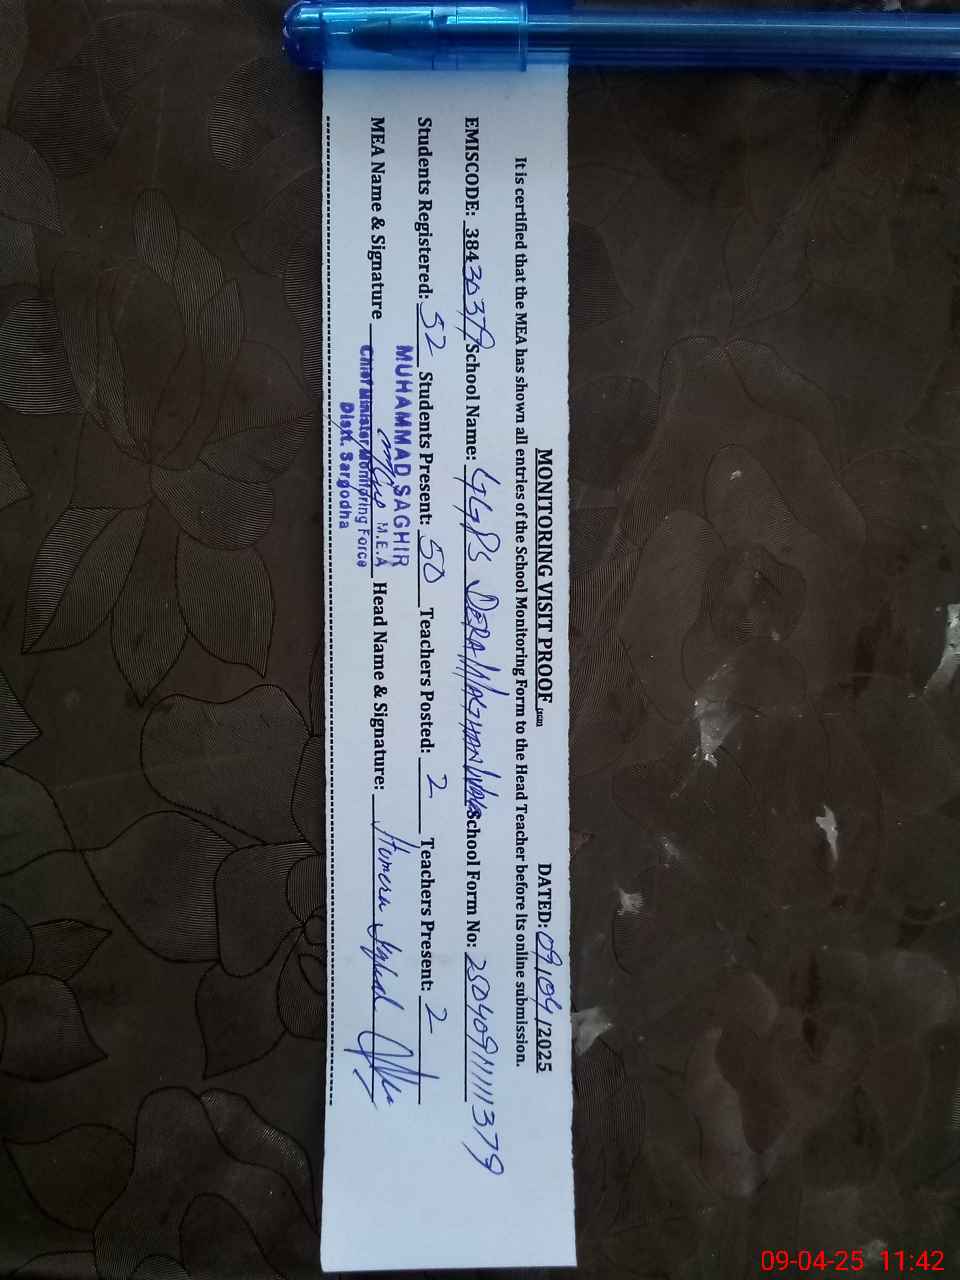 MONITORING VISIT PROOF DATED: 09/04/2025
It is certified that the MEA has shown all entries of the School Monitoring Form to the Head Teacher before its online submission.
EMISCODE: 38430379 School Name: GGPS DERA MAKHAN School Form No: 250409111111379
Students Registered: 52 Students Present: 50 Teachers Posted: 2 Teachers Present: 2
MUHAMMAD SAGHIR
MEA Name & Signature M.E.A Head Name & Signature: Humera Iqbal
Chief Minister Monitoring Force
Distt. Sargodha
09-04-25 11:42